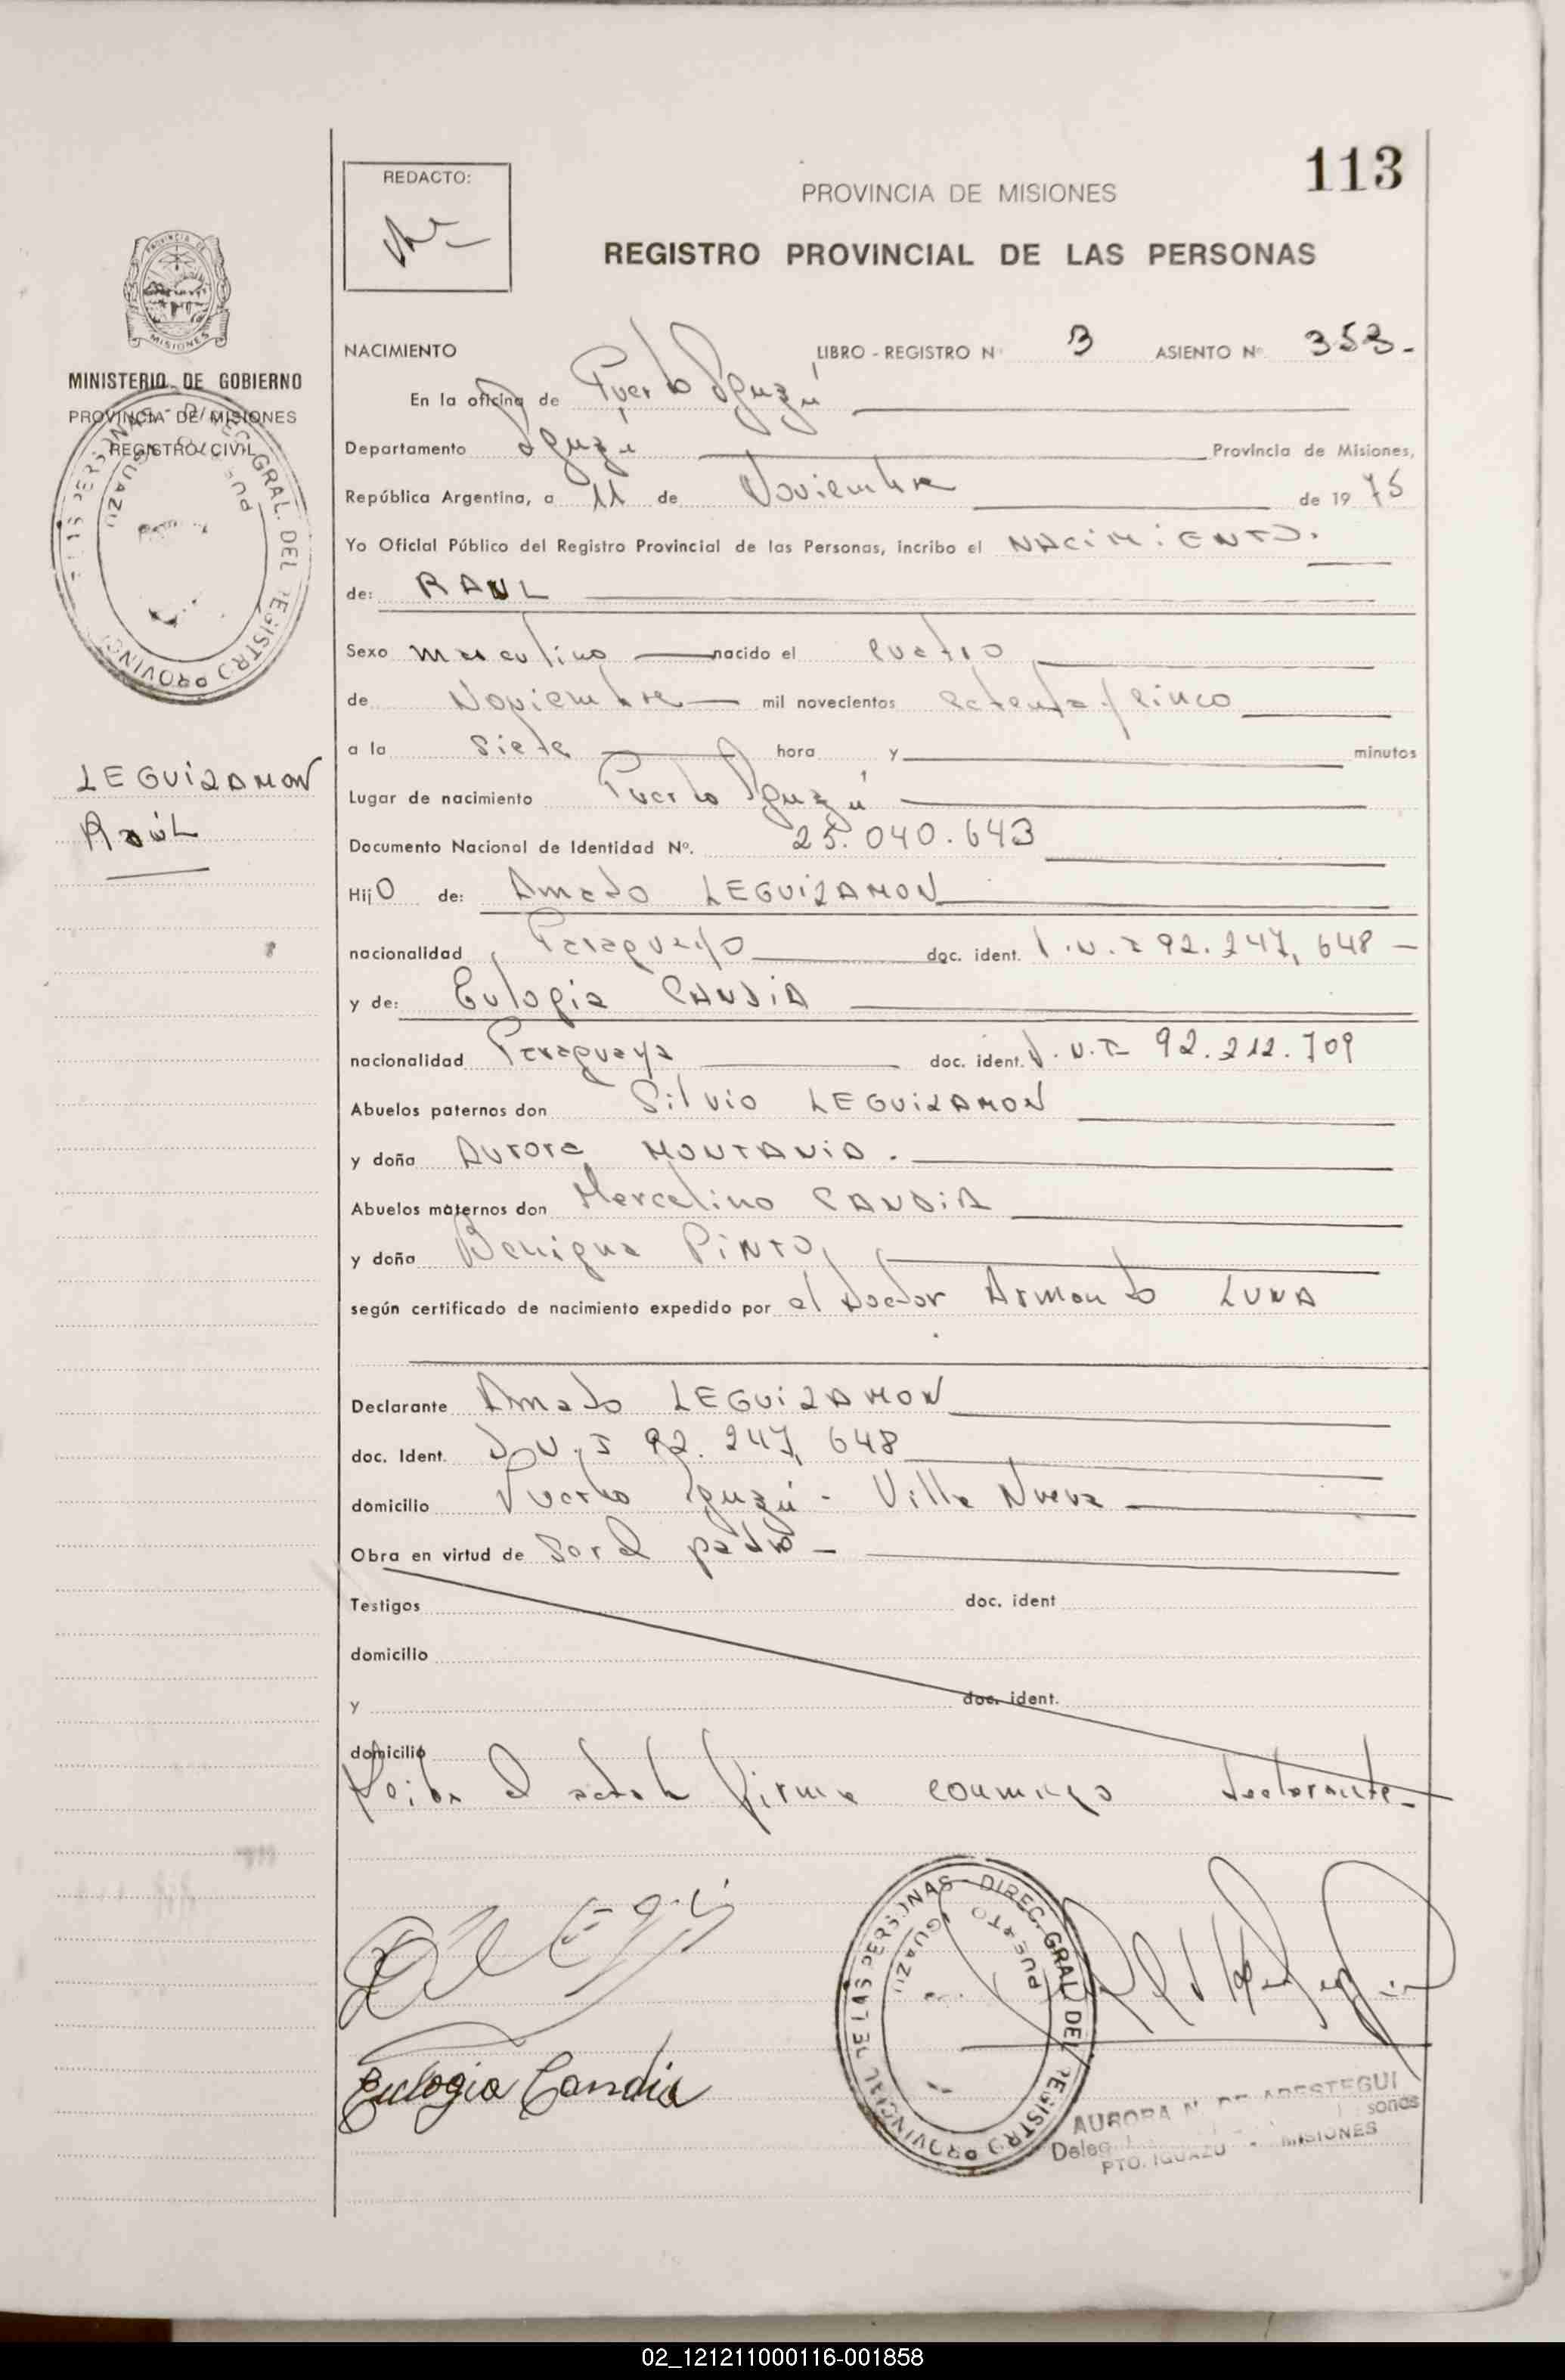 113
REDACTO:
PROVINCIA DE MISIONES
REGISTRO PROVINCIAL DE LAS PERSONAS
MISIONES
MINISTERIO DE GOBIERNO
PROVINCIA DE MISIONES
REGISTRO CIVIL
LEGUIZAMON
Raúl
NACIMIENTO LIBRO - REGISTRO Nº 3 ASIENTO Nº 353-
En la oficina de Puerto Iguazú
Departamento Iguazú Provincia de Misiones,
República Argentina, a 11 de Noviembre de 1975
Yo Oficial Público del Registro Provincial de las Personas, incribo el NACIMIENTO.
de: RAUL
Sexo masculino nacido el cuatro
de Noviembre mil novecientos setenta y cinco
a la siete hora y minutos
Lugar de nacimiento Puerto Iguazú
Documento Nacional de Identidad Nº. 25.040.643
Hijo de: Amado LEGUIZAMON
nacionalidad Paraguayo doc. ident. D.N.I 92.247.648
y de: Eulogia CANDIA
nacionalidad Paraguaya doc. ident. D.N.I 92.212.709
Abuelos paternos don Silvio LEGUIZAMON
y doña Aurora MONTANIA.
Abuelos maternos don Marcelino CANDIA
y doña Benigna PINTO,
según certificado de nacimiento expedido por el Doctor Armando LUNA
Declarante Amado LEGUIZAMON
doc. Ident. D.N.I 92.247.648
domicilio Puerto Iguazú - Villa Nueva
Obra en virtud de ser el padre
Testigos doc. ident
domicilio
y doc. ident.
domicilio
Leida el acta la firma conmigo declarante
Eulogia Candia
REGISTRO PROVINCIAL DE LAS PERSONAS - DIREC. GRAL. DEL
PUERTO IGUAZU
AURORA N. DE ARESTEGUI
PTO. IGUAZU - MISIONES
02_121211000116-001858